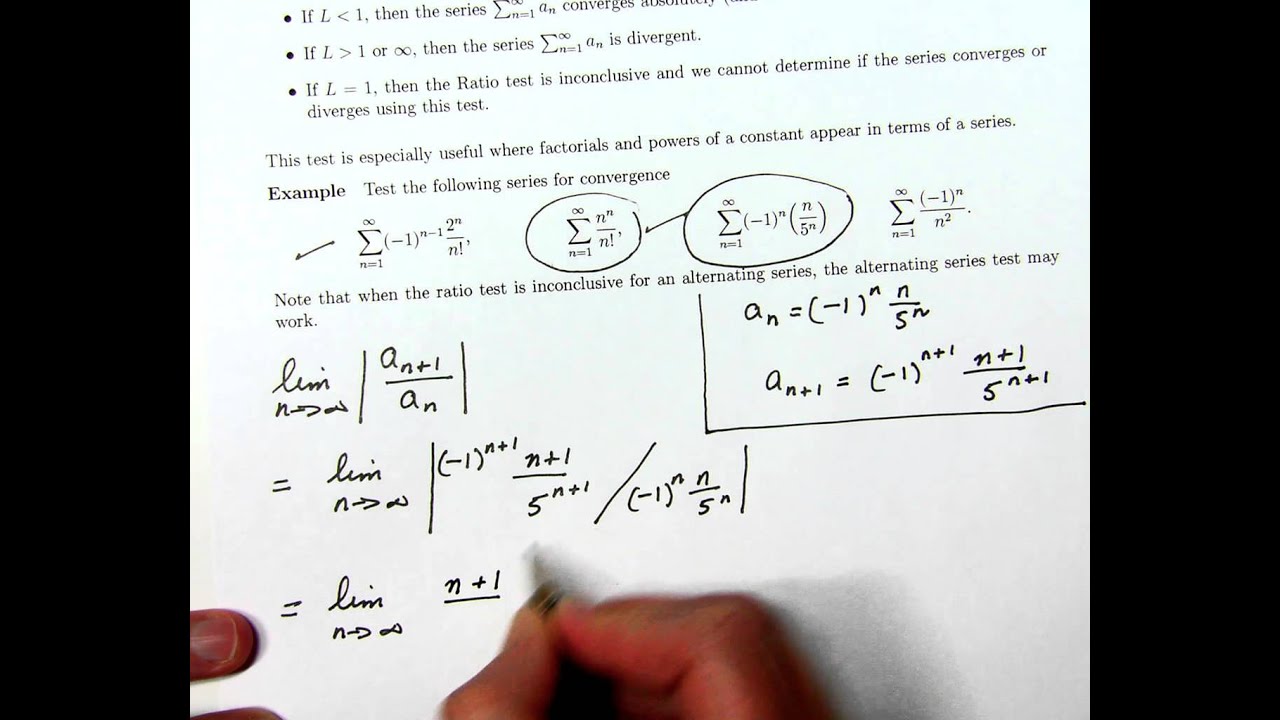 • If L < 1, then the series ∑_{n=1}^∞ a_n converges absolutely
• If L > 1 or ∞, then the series ∑_{n=1}^∞ a_n is divergent.
• If L = 1, then the Ratio test is inconclusive and we cannot determine if the series converges or
diverges using this test.
This test is especially useful where factorials and powers of a constant appear in terms of a series.
Example Test the following series for convergence
∑_{n=1}^∞ (-1)^{n-1} 2^n/n!, ∑_{n=1}^∞ n^n/n!, ∑_{n=1}^∞ (-1)^n (n/5^n) ∑_{n=1}^∞ (-1)^n/n^2.
Note that when the ratio test is inconclusive for an alternating series, the alternating series test may
work.
a_n = (-1)^n n/5^n
a_{n+1} = (-1)^{n+1} (n+1)/5^{n+1}
lim_{n→∞} |a_{n+1}/a_n|
= lim_{n→∞} |(-1)^{n+1} (n+1)/5^{n+1} / (-1)^n n/5^n|
= lim_{n→∞} n+1